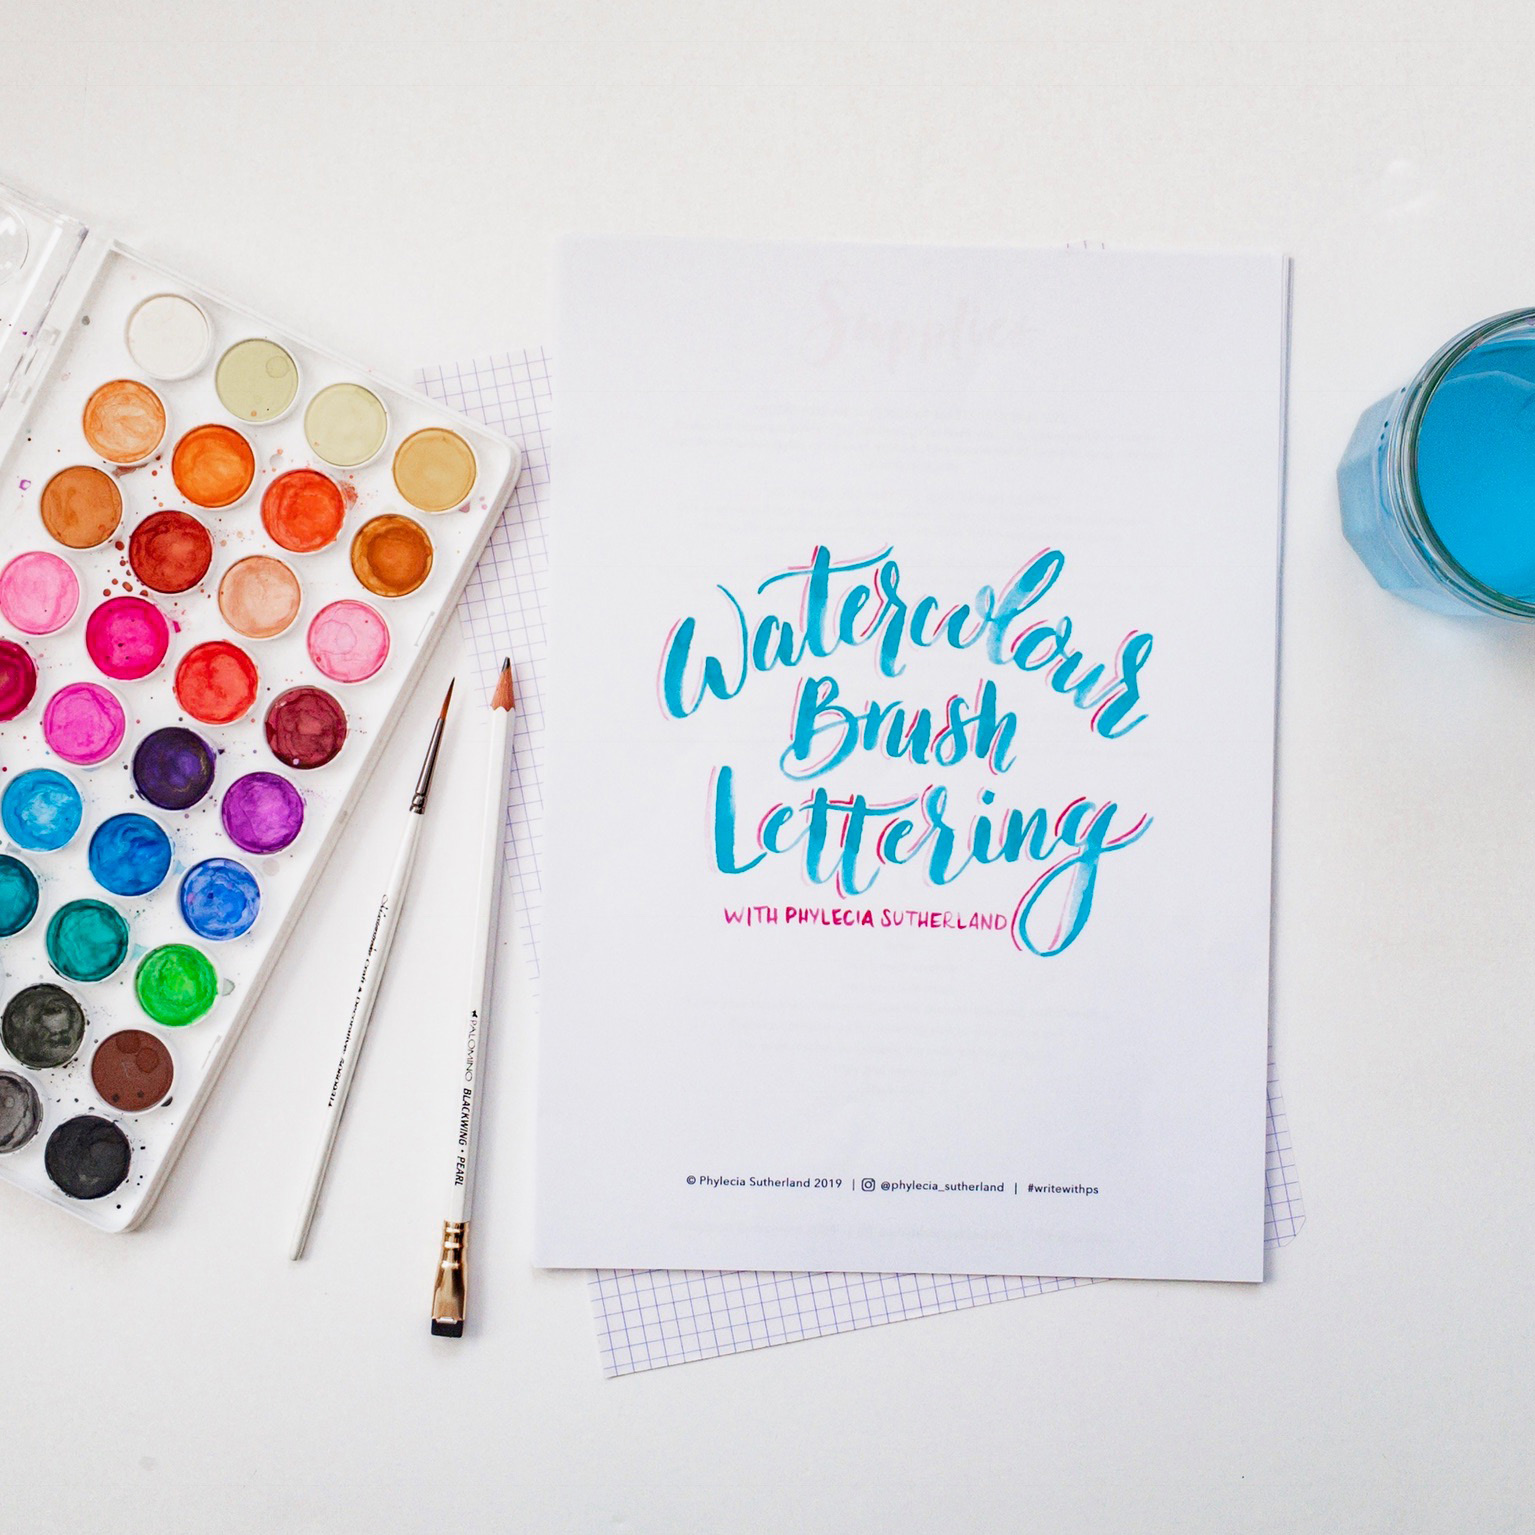 Watercolour
Brush
Lettering
WITH PHYLECIA SUTHERLAND
© Phylecia Sutherland 2019 | @phylecia_sutherland | #writewithps
PALOMINO BLACKWING • PEARL
Supplies